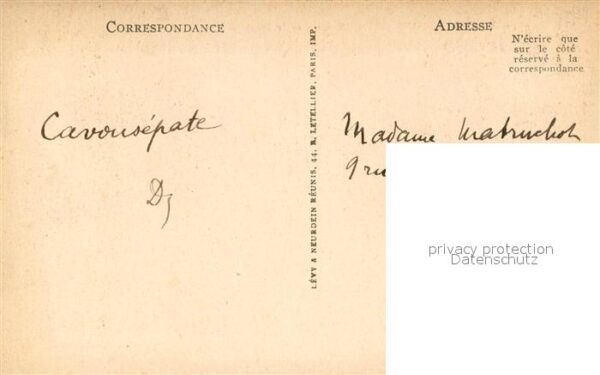 CORRESPONDANCE
ADRESSE
N'écrire que
sur le côté
réservé à la
correspondance
Cavousépate
LÉVY & NEURDEIN RÉUNIS, 44, R. LETELLIER, PARIS, IMP.
Madame Matruchot
9 ru
privacy protection
Datenschutz